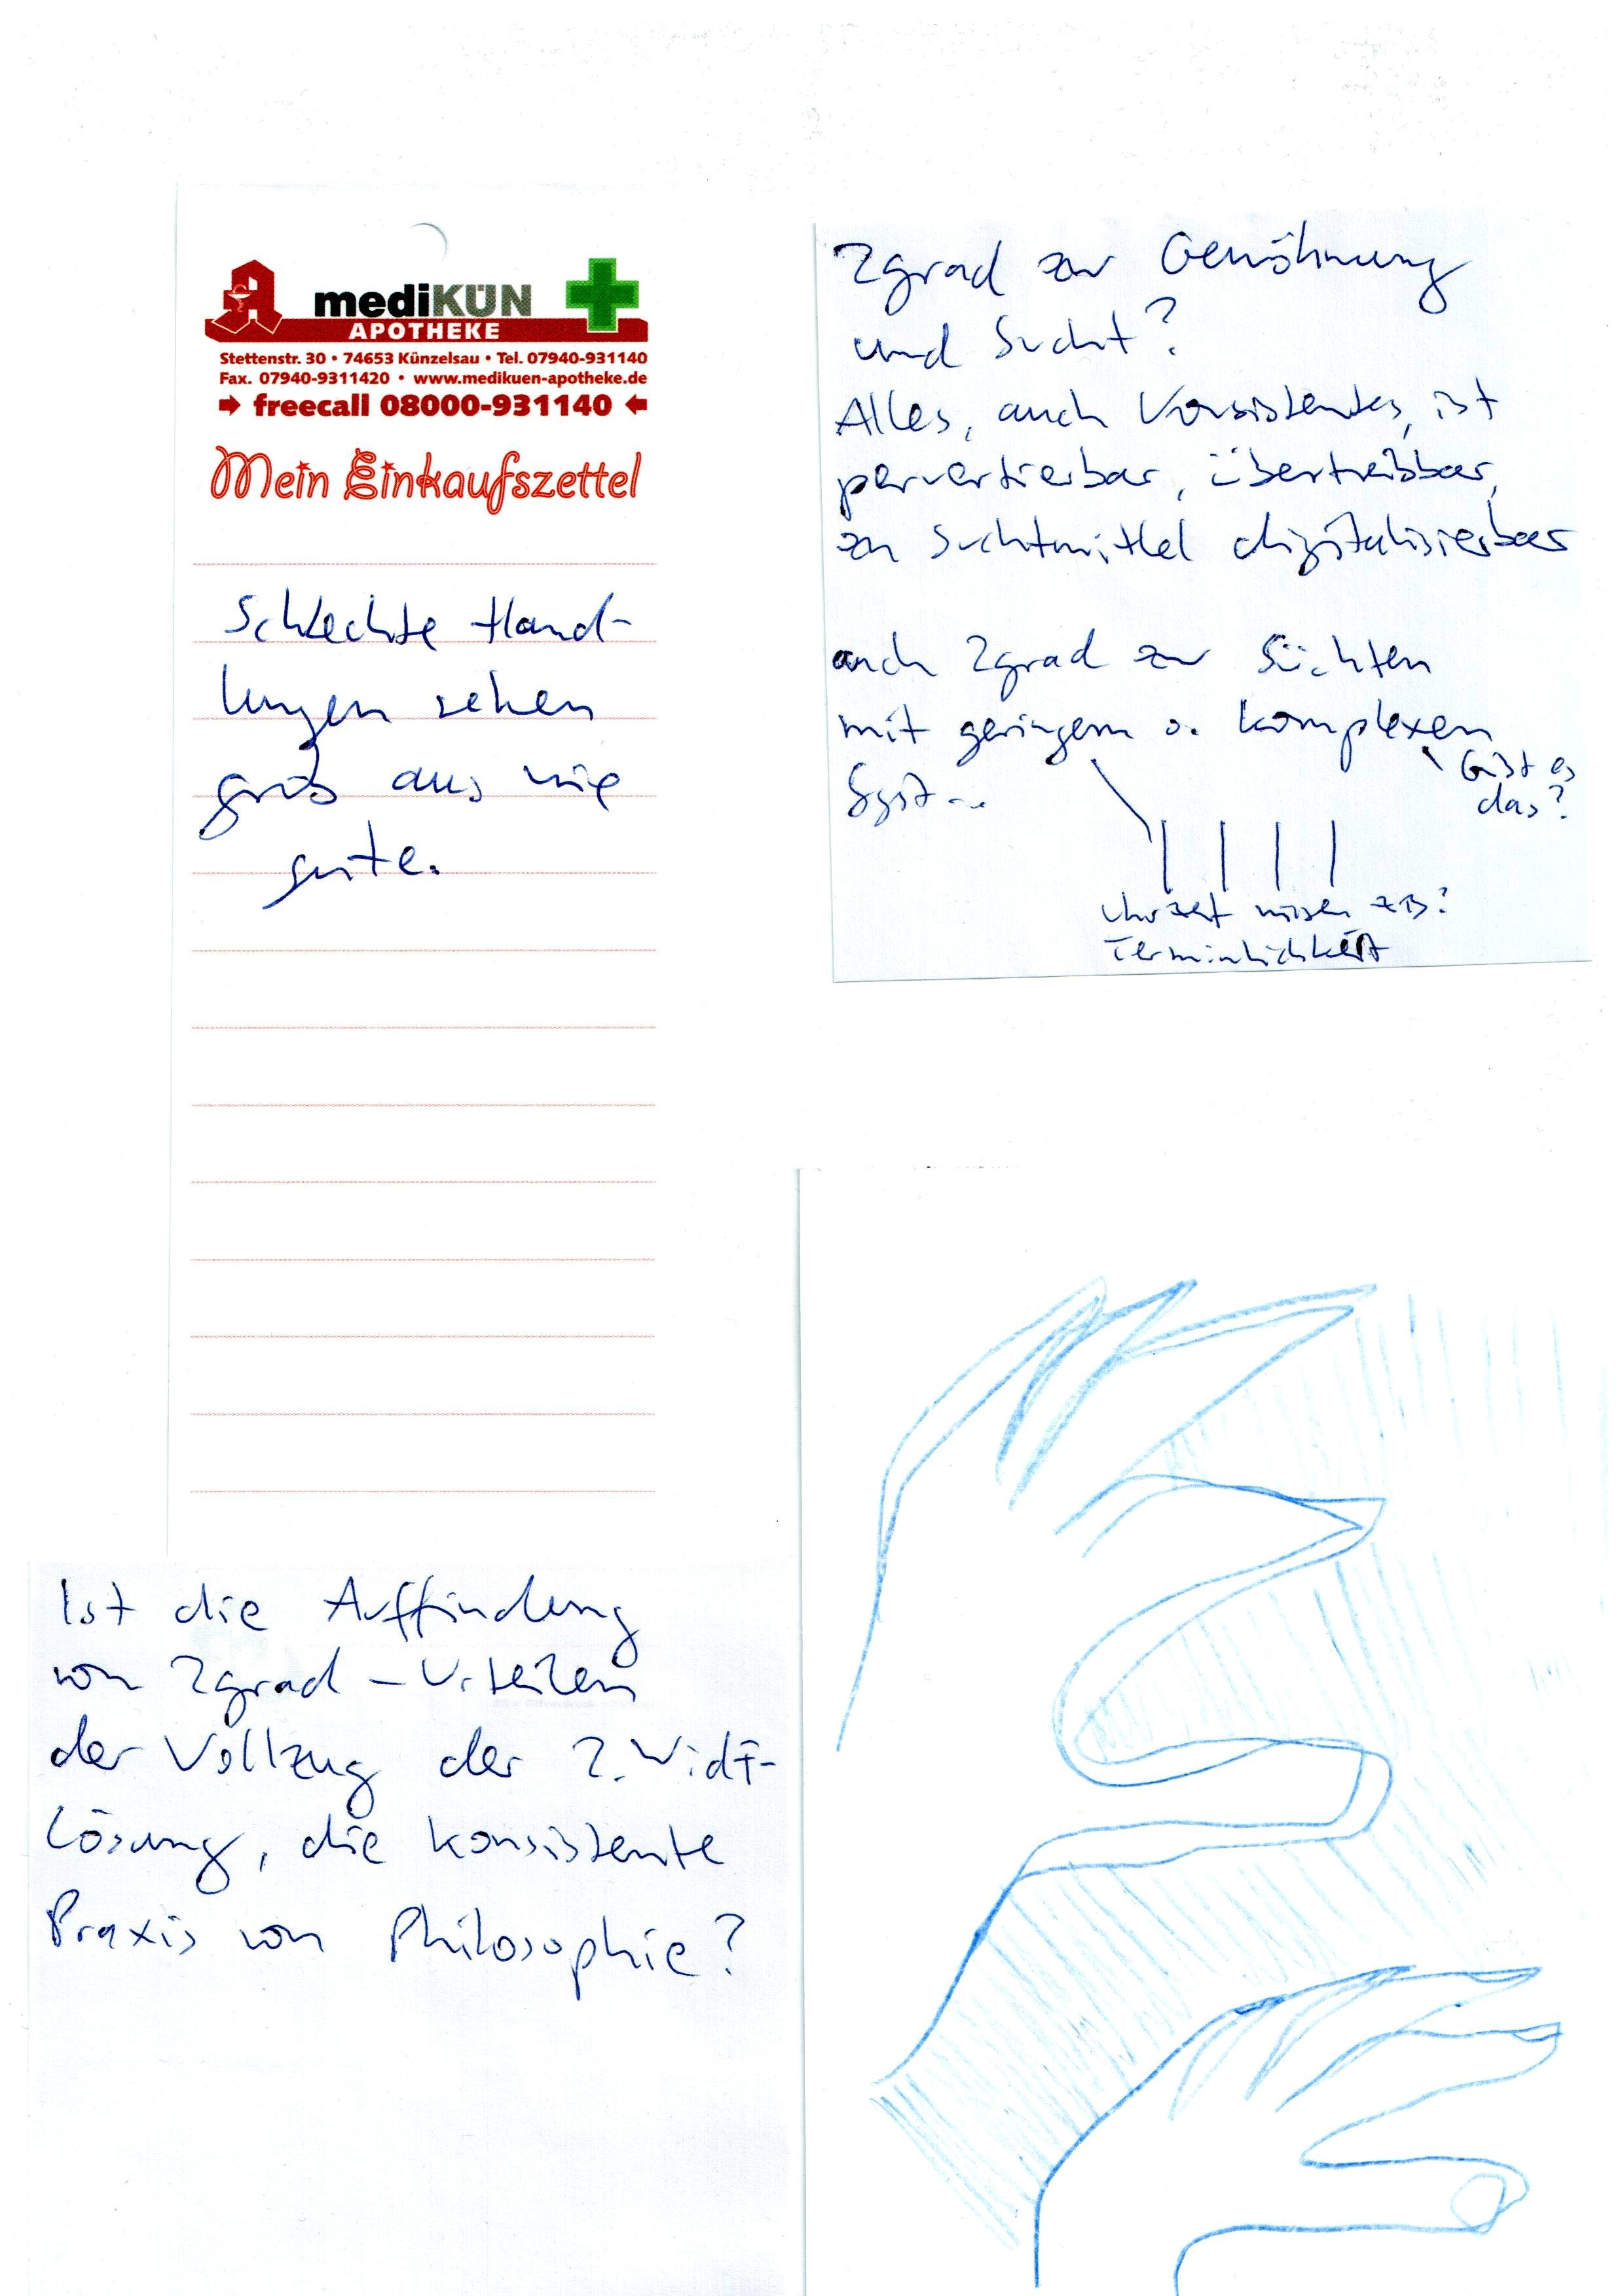 mediKÜN
APOTHEKE
Stettenstr. 30 • 74653 Künzelsau • Tel. 07940-931140
Fax. 07940-9311420 • www.medikuen-apotheke.de
➔ freecall 08000-931140 ←
Mein Einkaufszettel
Schlechte Hand-
lungen sehen
groß aus wie
gute.
2grad zur Gewöhnung
und Sucht?
Alles, auch Konsistentes, ist
pervertierbar, übertreibbar,
zu Suchtmittel digitalisierbar
auch 2grad zur Süchten
mit geringem o. komplexen
Gibt es
das?
Syst...
Uhrzeit wissen zB?
Terminlichkeit
Ist die Auffindung
von 2grad-Urteilen
der Vollzug der 2.Widf-
Lösung, die konsistente
Praxis von Philosophie?